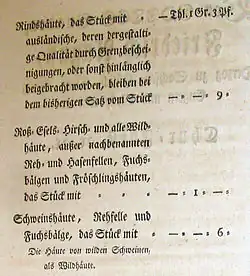 Rindshäute, das Stück mit — Thl. 1 Gr. 3 Pf.
ausländische, deren dergestalti-
ge Qualität durch Grenzbeschei-
nigungen, oder sonst hinlänglich
beigebracht worden, bleiben bei
dem bisherigen Satz vom Stück —=—=9=
Roß- Esels- Hirsch- und alle Wild-
häute, außer nachbenannten
Reh- und Hasenfellen, Fuchs-
bälgen und Fröschlingshäuten,
das Stück mit = = = —=1=—=
Schweinshäute, Rehfelle und
Fuchsbälge, das Stück mit = —=—=6=
Die Häute von wilden Schweinen,
als Wildhäute.